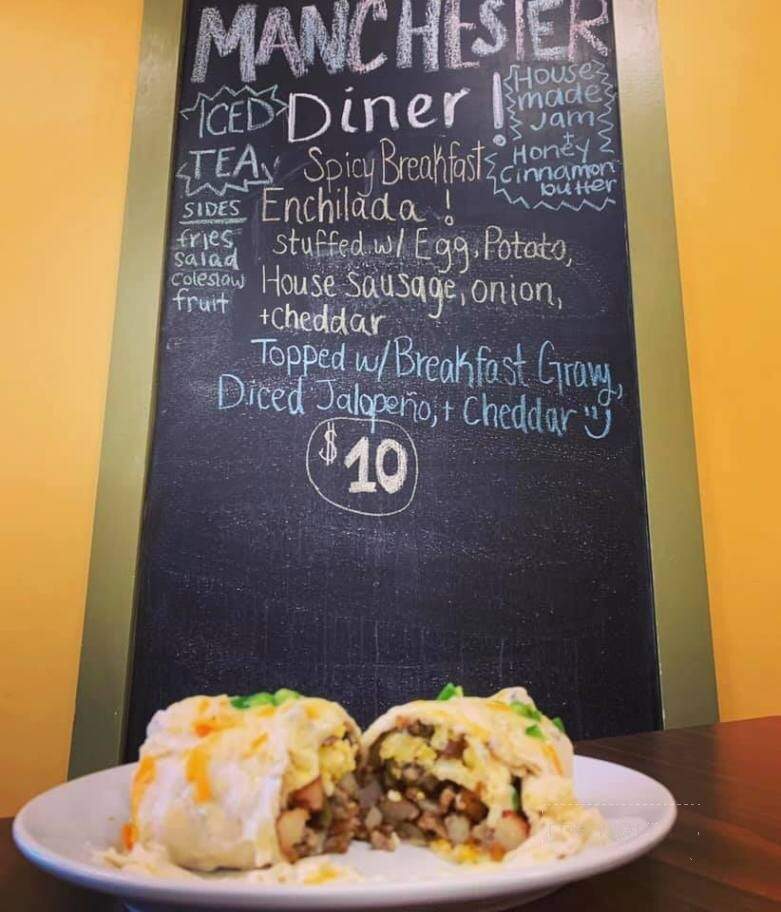 MANCHESTER
Diner!
ICED
TEA
House
made
Jam
+
Honey
Cinnamon
butter
SIDES
fries
salad
coleslaw
fruit
Spicy Breakfast
Enchilada!
stuffed w/ Egg, Potato,
House sausage, onion,
+cheddar
Topped w/ Breakfast Gravy,
Diced Jalapeño, + Cheddar
$10